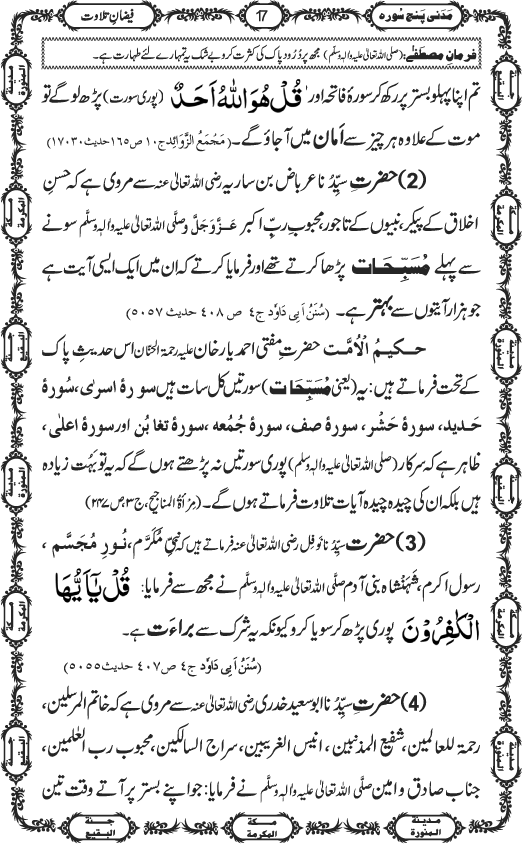 مَدَنی پَنج سُورہ
17
فیضانِ تلاوت
فرمانِ مصطفٰے: (صلی اللہ تعالیٰ علیہ والہٖ وسلّم) مجھ پر دُرُودِ پاک کی کثرت کرو بے شک یہ تمہارے لئے طہارت ہے۔
تم اپنا پہلو بستر پر رکھ کر سورۂ فاتحہ اور ' قُلْ هُوَ اللّٰهُ اَحَدٌ (پوری سورت) پڑھ لو گے تو
موت کے علاوہ ہر چیز سے اَمان میں آ جاؤ گے۔ (مَجْمَعُ الزَّوَائِد ج۱۰ ص۱۶۵ حدیث ۱۷۰۳۰)
(2) حضرتِ سیِّدُنا عرباض بن ساریہ رضی اللہ تعالیٰ عنہ سے مروی ہے کہ حُسنِ
اخلاق کے پیکر، نبیوں کے تاجور، محبوبِ ربِّ اکبر عَزَّوَجَلَّ و صلَّی اللہ تعالیٰ علیہ والہٖ وسلَّم سونے
سے پہلے مُسَبِّحَات پڑھا کرتے تھے اور فرمایا کرتے کہ ان میں ایک ایسی آیت ہے
جو ہزار آیتوں سے بہتر ہے۔ (سُنَنُ اَبِی دَاوٗد ج٤ ص ٤٠٨ حدیث ٥٠٥٧)
حکیمُ الْاُمَّت حضرتِ مفتی احمد یار خان علیہ رحمۃ الحنّان اس حدیثِ پاک
کے تحت فرماتے ہیں: یہ (یعنی مُسَبِّحَات) سورتیں کل سات ہیں سورۂ اسریٰ، سُورۂ
حدید، سورۂ حَشْر، سورۂ صف، سورۂ جُمُعہ، سورۂ تغابُن اور سورۂ اعلٰی،
ظاہر ہے کہ سرکار (صلی اللہ تعالیٰ علیہ والہٖ وسلّم) پوری سورتیں نہ پڑھتے ہوں گے کہ یہ تو بَہُت زیادہ
ہیں بلکہ ان کی چیدہ چیدہ آیات تلاوت فرماتے ہوں گے۔ (مِرْاٰۃُ المناجیح، ج۳، ص۲۴۷)
(3) حضرتِ سیِّدُنا نوفل رضی اللہ تعالیٰ عنہ فرماتے ہیں کہ نبیِّ مُکَرَّم، نُورِ مُجَسَّم،
رسولِ اکرم، شَہَنشاہِ بنی آدم صلَّی اللہ تعالیٰ علیہ والہٖ وسلَّم نے مجھ سے فرمایا: قُلْ يٰٓاَيُّهَا
الْكٰفِرُوْنَ پوری پڑھ کر سویا کرو کیونکہ یہ شرک سے براءَت ہے۔
(سُنَنُ اَبِی دَاوٗد ج٤ ص ٤٠٧ حدیث ٥٠٥٥)
(4) حضرتِ سیِّدُنا ابو سعید خدری رضی اللہ تعالیٰ عنہ سے مروی ہے کہ خاتم المرسلین،
رحمۃ للعالمین، شفیع المذنبین، انیس الغریبین، سراج السالکین، محبوب رب العٰلمین،
جناب صادق و امین صلَّی اللہ تعالیٰ علیہ والہٖ وسلَّم نے فرمایا: جو اپنے بستر پر آتے وقت تین
مدینۃ المنورۃ
مکۃ المکرمۃ
جنۃ البقیع